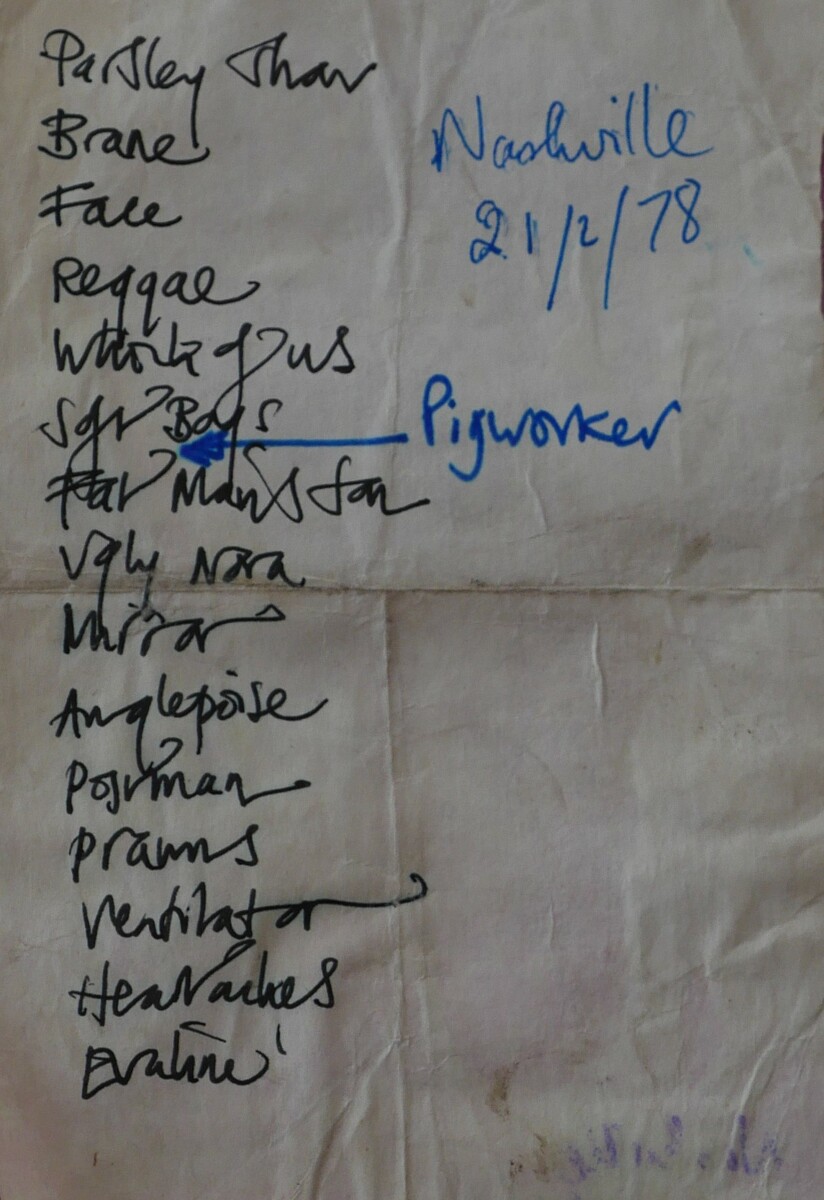 Parsley Shar
Brane
Face
Reggae
Which of us
Sgt Boys
Fat Man's Son
Ugly Nora
Mirror
Anglepoise
Postman
Prawns
Ventilator
Heartaches
Evaline
Nashville
21/2/78
Pigworker